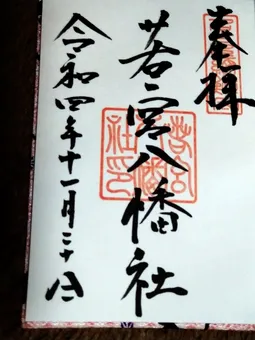 奉拝
若宮八幡社
令和四年十一月二十六日